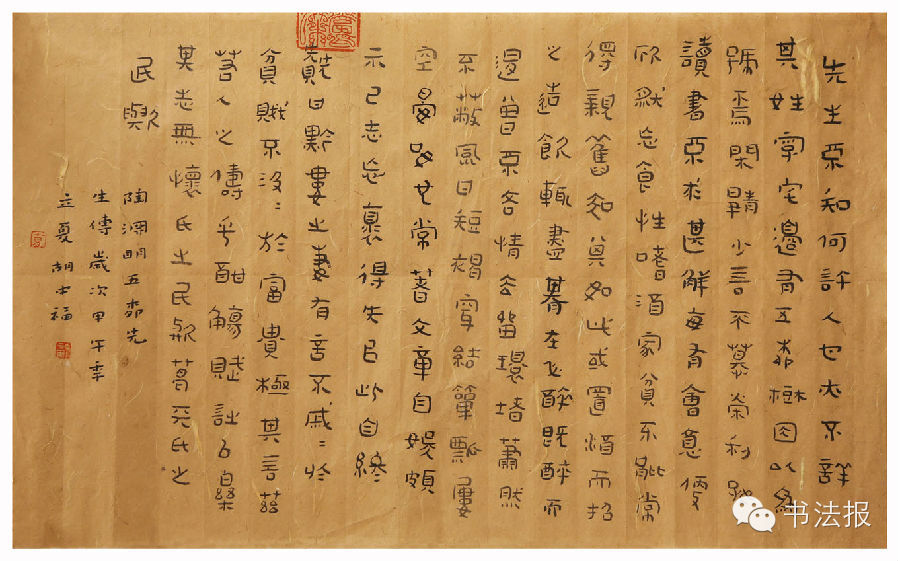 先生不知何許人也亦不詳
其姓字宅邊有五柳樹因以為
號焉閑靜少言不慕榮利好
讀書不求甚解每有會意便
欣然忘食性嗜酒家貧不能常
得親舊知其如此或置酒而招
之造飲輒盡期在必醉既醉而
退曾不吝情去留環堵蕭然
不蔽風日短褐穿結簞瓢屢
空晏如也常著文章自娛頗
示己志忘懷得失以此自終
贊曰黔婁之妻有言不戚〻於
貧賤不汲〻於富貴極其言茲
若人之儔乎酣觴賦詩以樂
其志無懷氏之民歟葛天氏之
民歟
陶淵明五柳先
生傳歲次甲午年
立夏胡中福
书法报